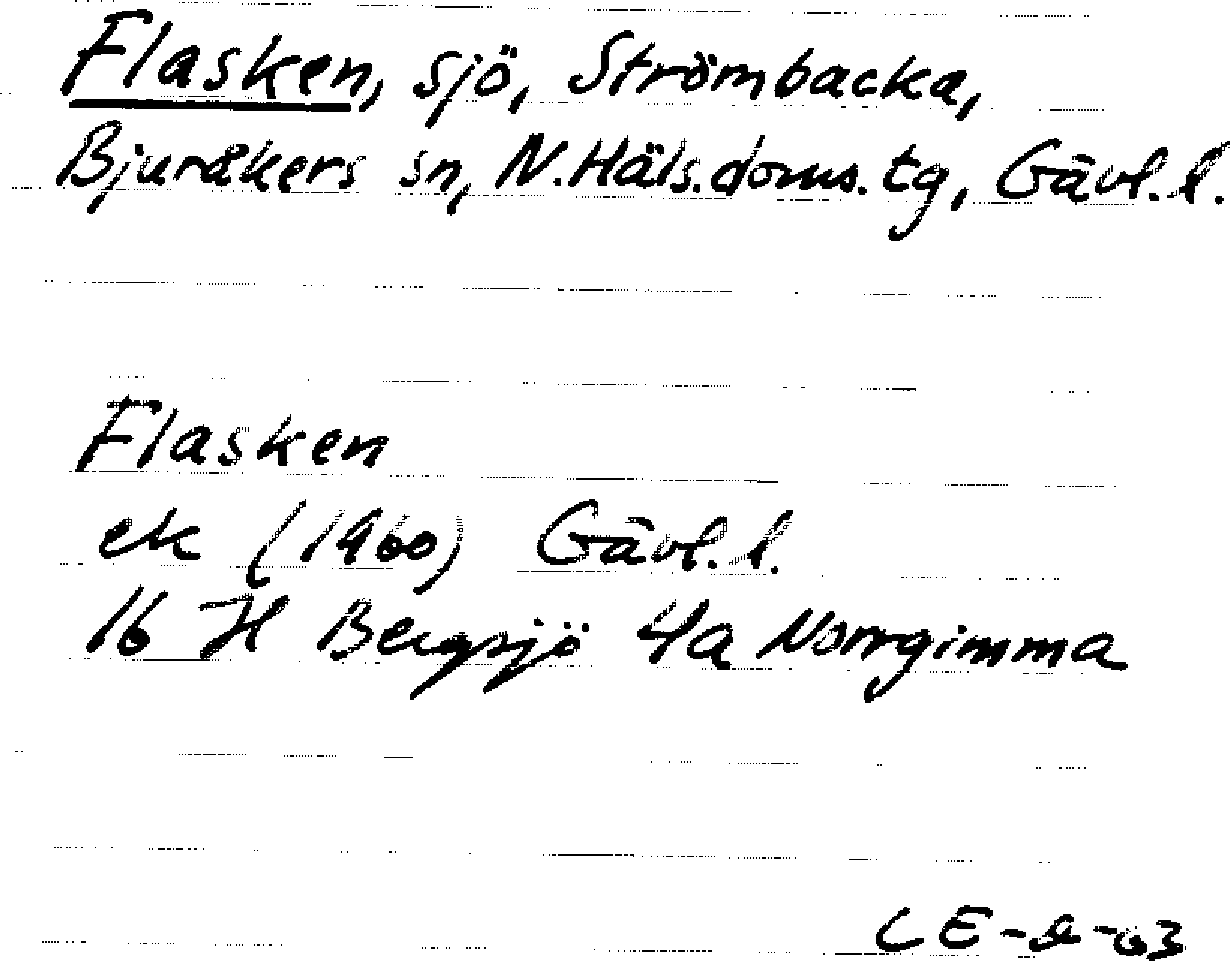 Flasken, sjö, Strömbacka,
Bjuråkers sn, N.Häls.doms.tg, Gävl.l.
Flasken
ek (1960) Gävl.l.
16 H Bergsjö 4a Norrgimma